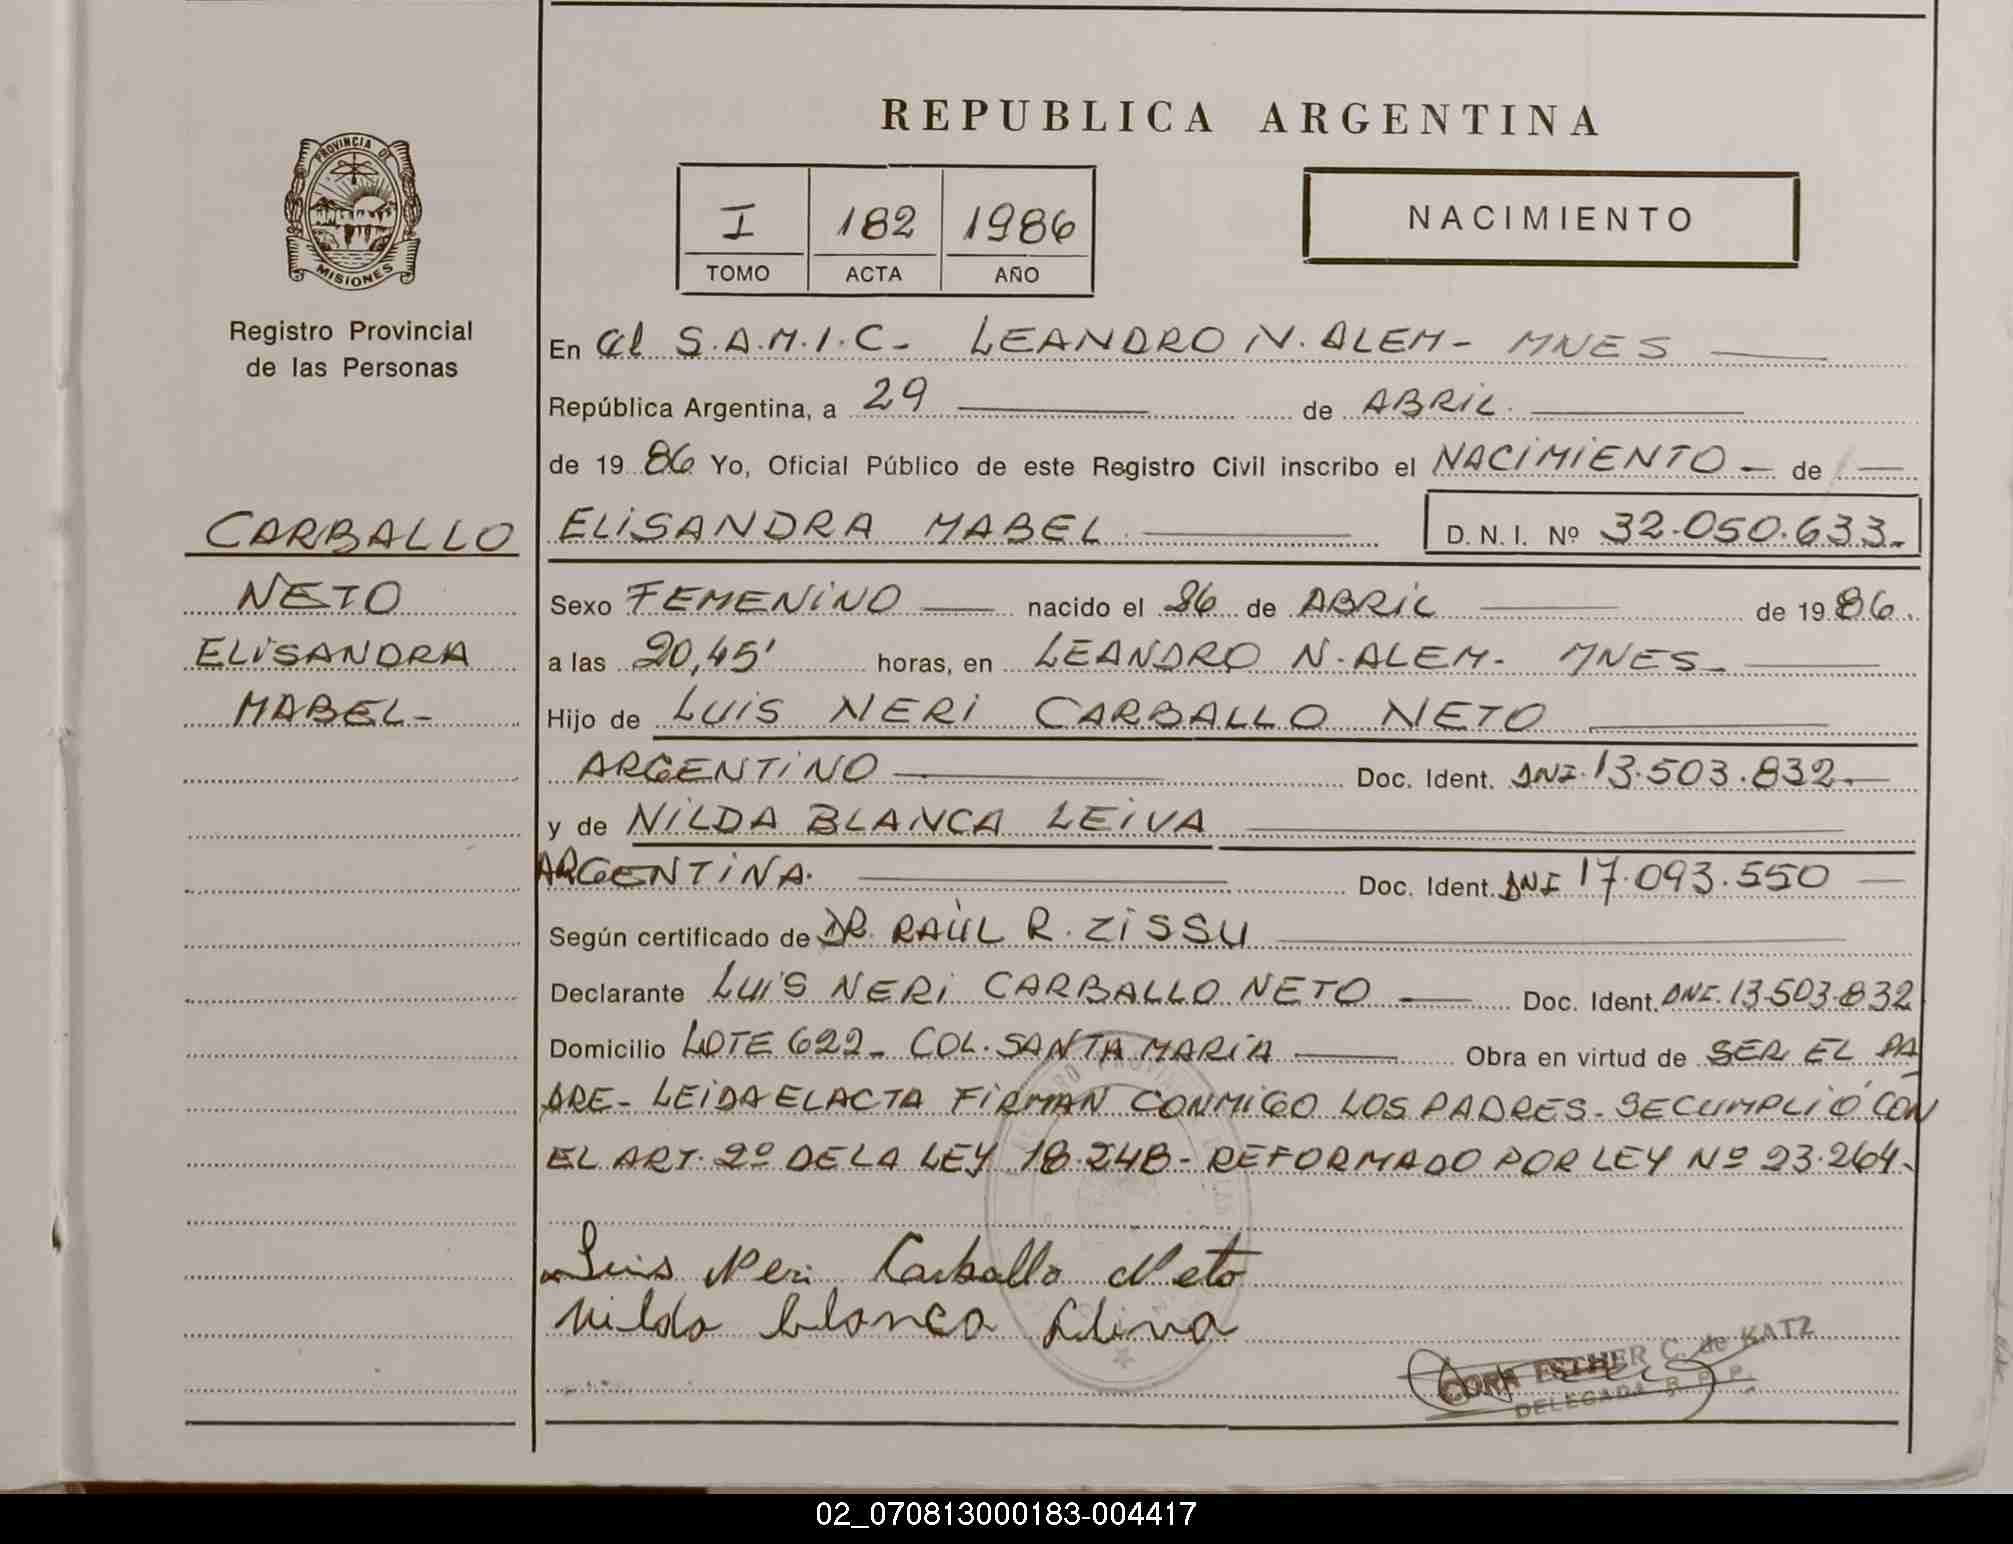 REPUBLICA ARGENTINA
PROVINCIA DE
MISIONES
Registro Provincial
de las Personas
I 182 1986
TOMO ACTA AÑO
NACIMIENTO
En el S.A.M.I.C- LEANDRO N. ALEM- MNES
República Argentina, a 29 de ABRIL.
de 19 86 Yo, Oficial Público de este Registro Civil inscribo el NACIMIENTO- de
ELISANDRA MABEL D. N. I. Nº 32.050.633.
CARBALLO
NETO
ELISANDRA
MABEL-
Sexo FEMENINO nacido el 26 de ABRIL de 19 86.
a las 20,45' horas, en LEANDRO N. ALEM- MNES-
Hijo de LUIS NERI CARBALLO NETO
ARGENTINO Doc. Ident. DNI. 13.503.832.
y de NILDA BLANCA LEIVA
ARGENTINA. Doc. Ident. DNI 17.093.550
Según certificado de DR. RAÙL R. ZISSU
Declarante LUIS NERI CARBALLO NETO Doc. Ident. DNI. 13.503.832
Domicilio LOTE 622- COL. SANTA MARIA Obra en virtud de SER EL PA
DRE- LEIDA EL ACTA FIRMAN CONMIGO LOS PADRES- SE CUMPLIÓ CON
EL ART. 2º DE LA LEY 18.248- REFORMADO POR LEY Nº 23.264.
Luis Neri Carballo Neto
Nilda blanca Leiva
ESTHER C. de KATZ
DELEGADA R. P. P.
02_070813000183-004417